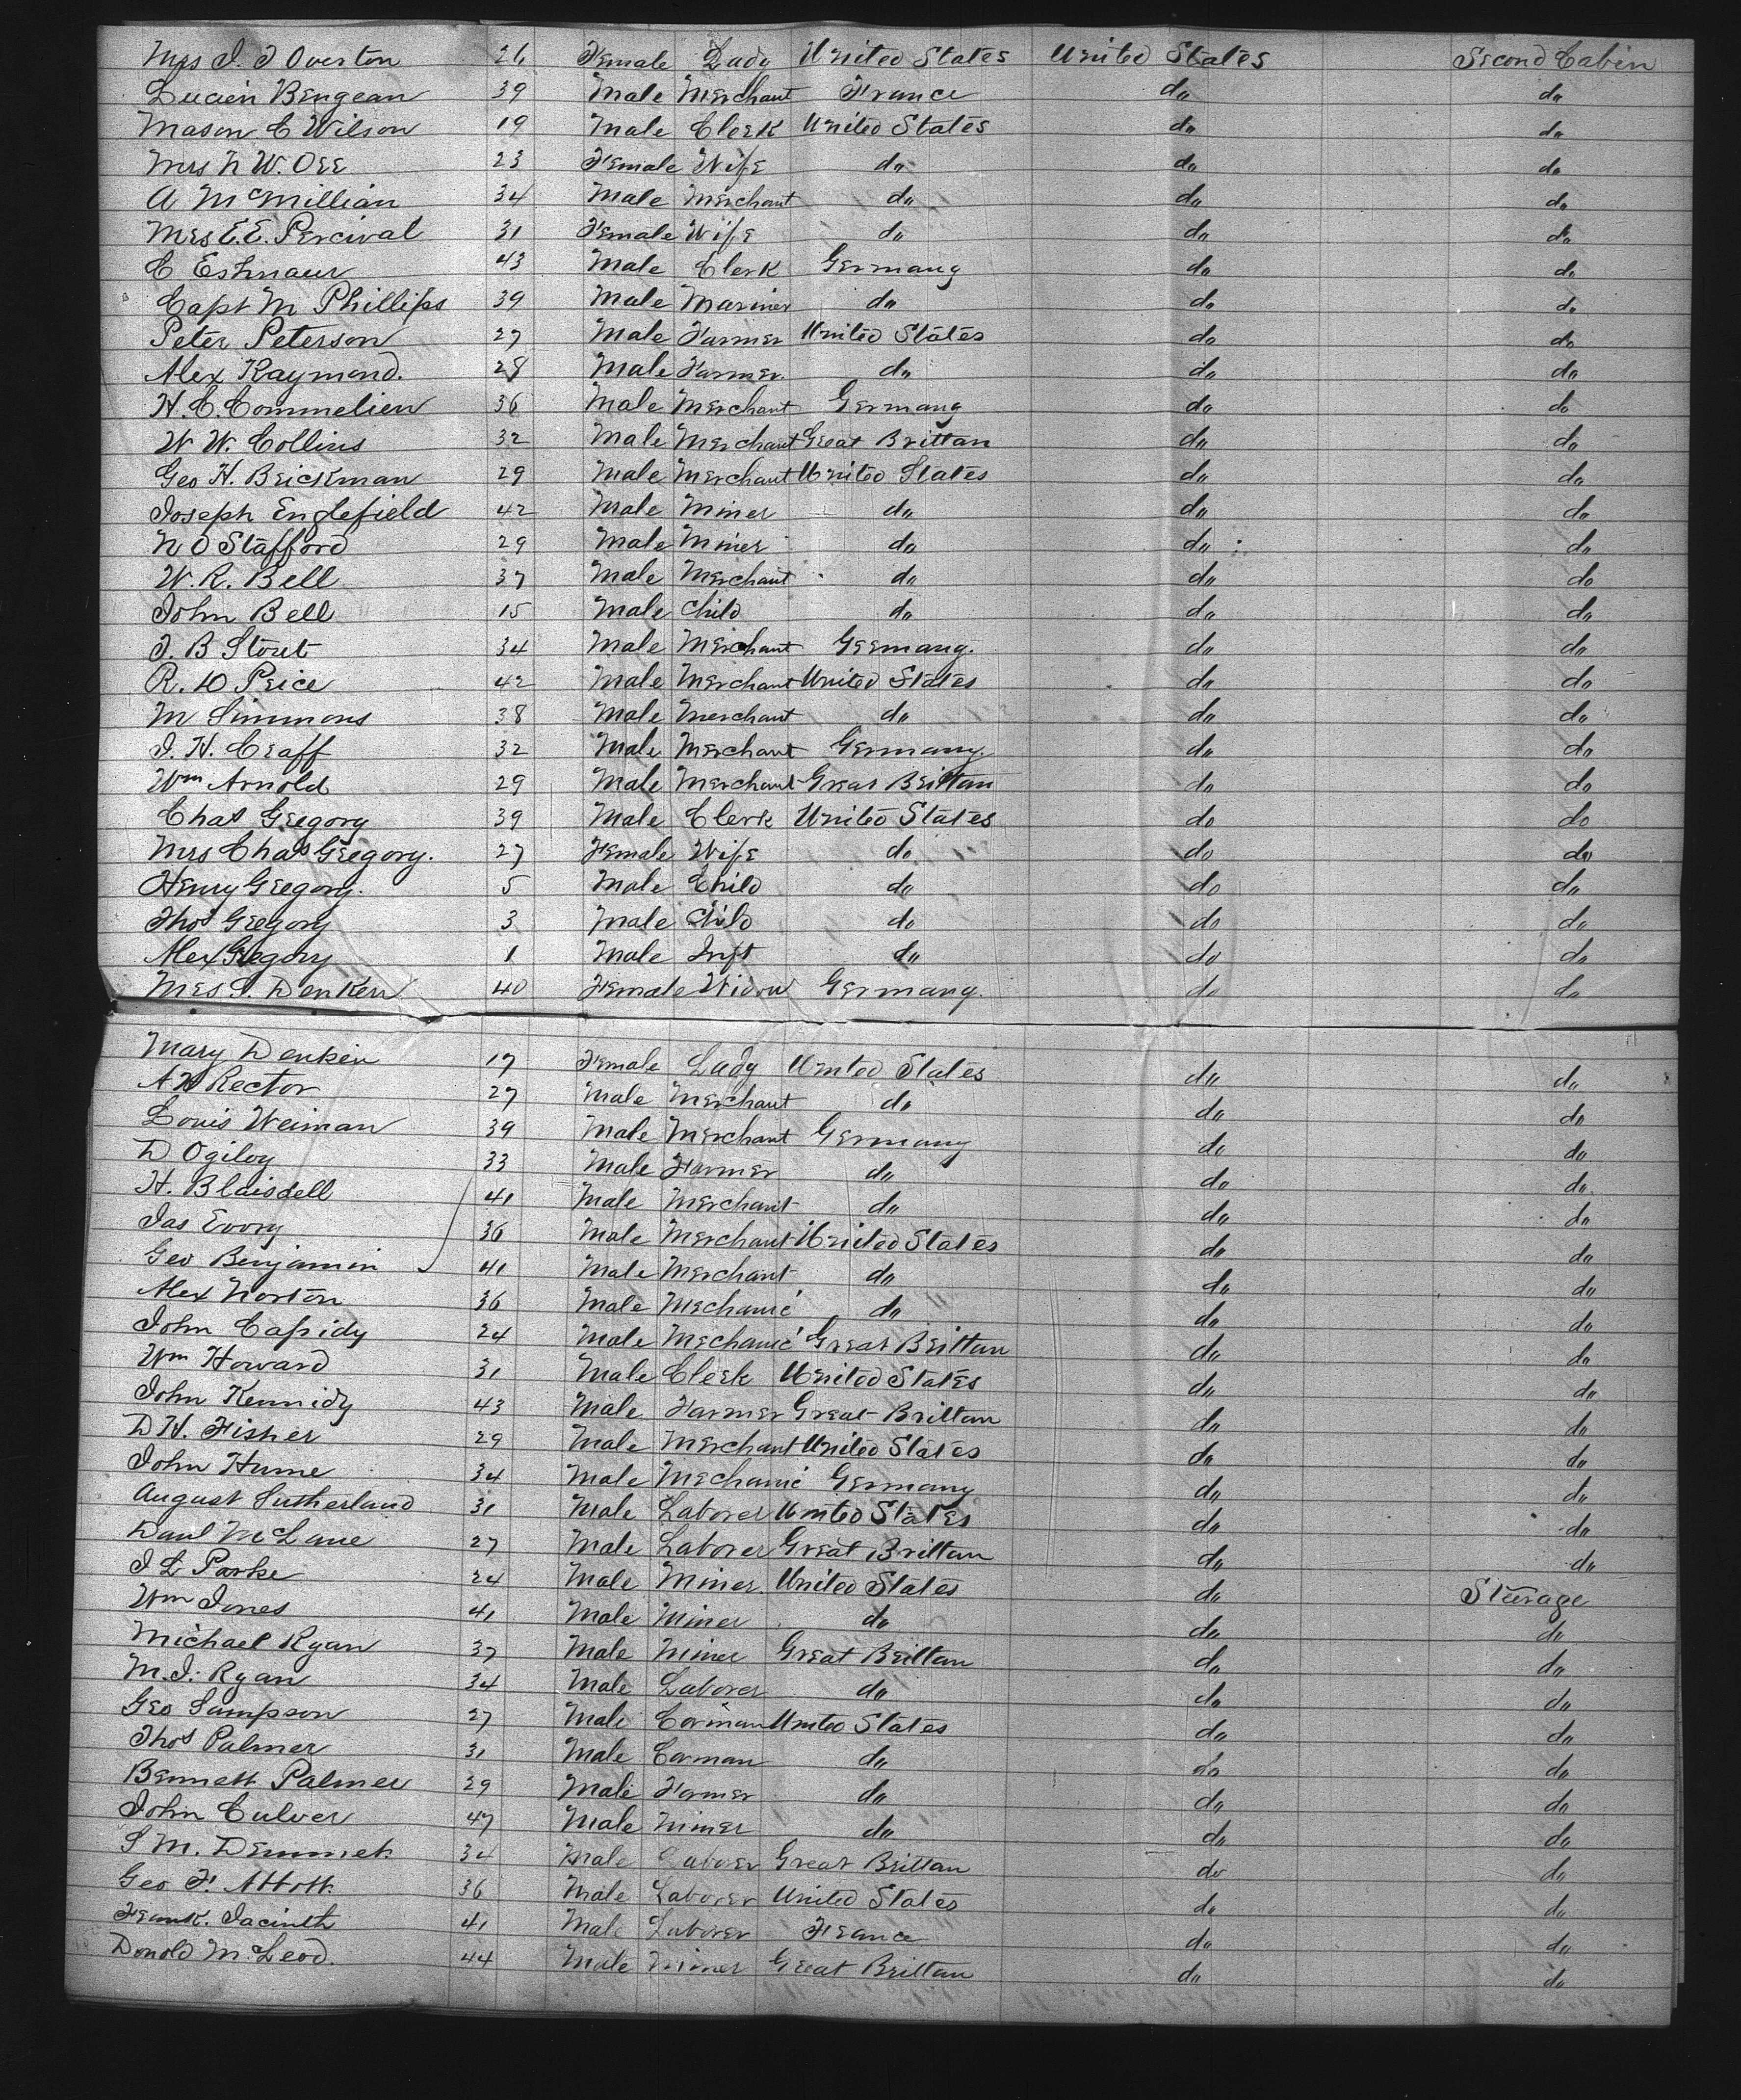 Mrs J. T Overton 26 Female Lady United States United States Second Cabin
Lucien Bengean 39 Male Merchant France do do
Mason C Wilson 19 Male Clerk United States do do
Mrs N W. Orr 23 Female Wife do do do
A McMillian 34 Male Merchant do do do
Mrs E. E. Percival 31 Female Wife do do do
C Eshnaur 43 Male Clerk Germany do do
Capt M Phillips 39 Male Mariner do do do
Peter Peterson 27 Male Farmer United States do do
Alex Raymond. 28 Male Farmer. do do do
H. C. Commelien 36 Male Merchant Germany do do
W W. Collins 32 Male Merchant Great Brittan do do
Geo H. Brickman 29 Male Merchant United States do do
Joseph Englefield 42 Male Miner do do do
N O Stafford 29 Male Miner do do do
W. R. Bell 37 Male Merchant do do do
John Bell 15 Male Child do do do
J. B Stout 34 Male Merchant Germany. do do
R. D Price 42 Male Merchant United States do do
M Simmons 38 Male Merchant do do do
J. H. Craff 32 Male Merchant Germany. do do
Wm Arnold 29 Male Merchant Great Brittan do do
Chas Gregory 39 Male Clerk United States do do
Mrs Chas Gregory. 27 Female Wife do do do
Henry Gregory. 5 Male Child do do do
Thos Gregory 3 Male Child do do do
Alex Gregory 1 Male Inft do do do
Mrs S. Denken 40 Female Widow Germany. do do
Mary Denken 17 Female Lady United States do do
A W Rector 27 Male Merchant do do do
Louis Weiman 39 Male Merchant Germany do do
D Ogilvy 33 Male Farmer do do do
H. Blaisdell 41 Male Merchant do do do
Jas Evory 36 Male Merchant United States do do
Geo Benjamin 41 Male Merchant do do do
Alex Norton 36 Male Mechanic do do do
John Casidy 24 Male Mechanic Great Brittan do do
Wm Howard 31 Male Clerk United States do do
John Kennidy 43 Male Farmer Great Brittan do do
D H. Fisher 29 Male Merchant United States do do
John Hume 34 Male Mechanic Germany do do
August Sutherland 31 Male Laborer United States do do
Danl McLane 27 Male Laborer Great Brittan do do
J L Parke 24 Male Miner United States do Sturage
Wm Jones 41 Male Miner do do do
Michael Ryan 37 Male Miner Great Brittan do do
M. J. Ryan 34 Male Laborer do do do
Geo Sampson 27 Male Carman United States do do
Thos Palmer 31 Male Carman do do do
Bennett Palmer 29 Male Farmer do do do
John Culver 47 Male Miner do do do
S M. Demmet 34 Male Laborer Great Brittan do do
Geo F. Abbott 36 Male Laborer United States do do
Frank. Jacinth 41 Male Laborer France do do
Donold McLeod. 44 Male Miner Great Brittan do do